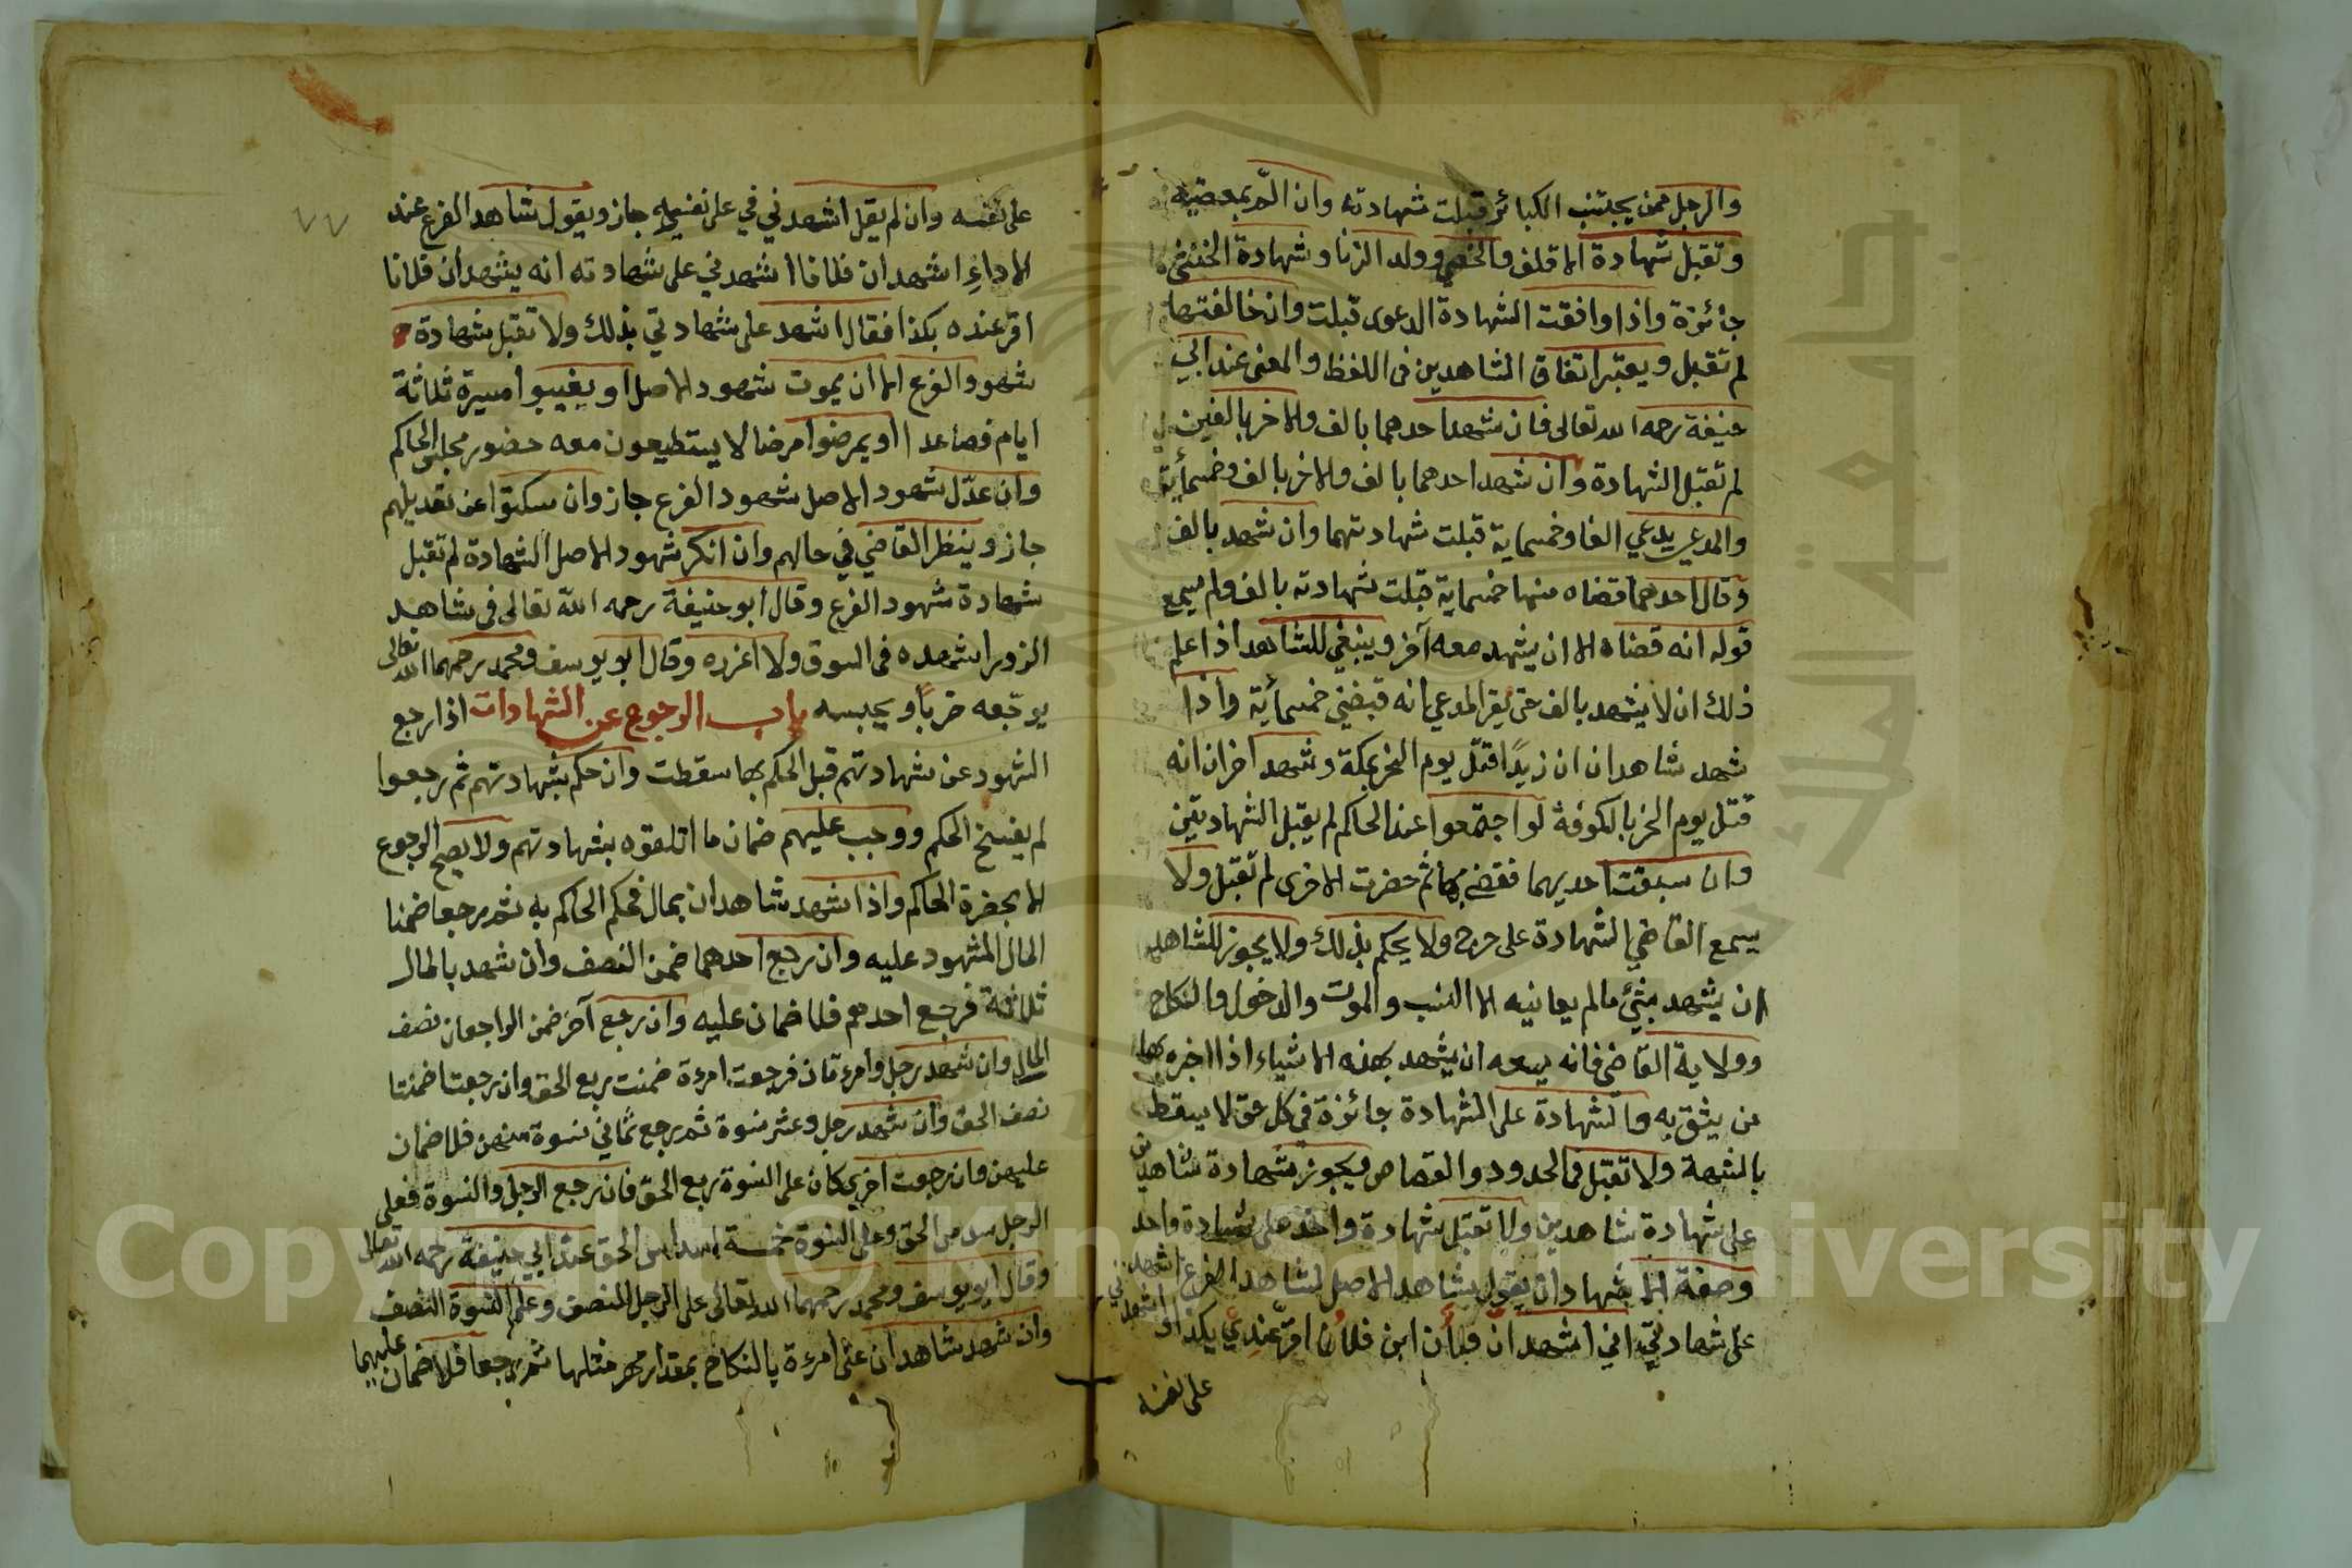 والرجل ممن يجتنب الكبائر قبلت شهادته وان الم بمعصية
وتقبل شهادة الاقلف والخصي وولد الزنا وشهادة الخنثى
جائزة واذا وافقت الشهادة الدعوى قبلت وان خالفتها
لم تقبل ويعتبر اتفاق الشاهدين في اللفظ والمعنى عند ابي
حنيفة رحمه الله تعالى فان شهد احدهما بالف والاخر بالفين
لم تقبل الشهادة وان شهد احدهما بالف والاخر بالف وخمسمأية
والمدعي يدعي الفا وخمسماية قبلت شهادتهما وان شهد بالف
وقال احدهما قضاه منها خمسماية قبلت شهادته بالف ولم يسمع
قوله انه قضاه الا ان يشهد معه آخر وينبغي للشاهد اذا علم
ذلك ان لا يشهد بالف حتى يقر المدعي انه قبضني خمسمأية واذا
شهد شاهدان ان زيدًا قتل يوم النحر بمكة وشهد اخران انه
قتل يوم النحر بالكوفة لو اجتمعوا عند الحاكم لم يقبل الشهادتين
وان سبقت احديهما فقضي بها ثم حضرت الاخرى لم تقبل ولا
يسمع القاضي الشهادة على جرح ولا يحكم بذلك ولا يجوز للشاهد
ان يشهد بشئ مالم يعاينه الا النسب والموت والدخول والنكاح
وولاية القاضي فانه يسعه ان يشهد بهذه الاشياء اذا اخبره بها
من يثق به والشهادة على الشهادة جائزة في كل حق لا يسقط
بالشبهة ولا تقبل في الحدود والقصاص ويجوز شهادة شاهدين
على شهادة شاهدين ولا تقبل شهادة واحد على شهادة واحد
وصفة الاشهاد ان يقول شاهد الاصل لشاهد الفرع اشهد
على شهادتي اني اشهد ان فلان ابن فلان اقر عندي بكذا واشهدني
على نفسه
على نفسه وان لم يقل اشهدني في على نفسه جاز ويقول شاهد الفرع عند
الاداءِ اشهد ان فلانا اشهدني على شهادته انه يشهد ان فلانا
اقر عنده بكذا فقال اشهد على شهادتي بذلك ولا تقبل شهادة
شهود الفرع الا ان يموت شهود الاصل او يغيبوا مسيرة ثلاثة
ايام فصاعدا او يمرضوا مرضا لا يستطيعون معه حضور مجلس الحاكم
وان عدّل شهود الاصل شهود الفرع جاز وان سكتوا عن تعديلهم
جاز وينظر القاضي في حالهم وان انكر شهود الاصل الشهادة لم تقبل
شهادة شهود الفرع وقال ابو حنيفة رحمه الله تعالى في شاهد
الزور اشهده في السوق ولا اعزره وقال ابو يوسف ومحمد رحمهما الله تعالى
يوجّعه ضربًا ويحبسه باب الرجوع عن الشهادات اذا رجع
الشهود عن شهادتهم قبل الحكم بها سقطت وان حكم بشهادتهم ثم رجعوا
لم يفسخ الحكم ووجب عليهم ضمان ما اتلفوه بشهادتهم ولا يصح الرجوع
الا بحضرة الحاكم واذا شهد شاهدان بمال فحكم الحاكم به ثم رجعا ضمنا
المال المشهود عليه وان رجع احدهما ضمن النصف وان شهد بالمال
ثلاثة فرجع احدهم فلا ضمان عليه وان رجع آخر ضمن الراجعان نصف
المال وان شهد رجل وامرءتان فرجعت امرءة ضمنت ربع الحق وان رجعتا ضمنتا
نصف الحق وان شهد رجل وعشر نسوة ثم رجع ثماني نسوة منهن فلا ضمان
عليهن وان رجعت اخرى كان على النسوة ربع الحق فان رجع الرجل والنسوة فعلى
الرجل سدس الحق وعلى النسوة خمسة اسداس الحق عند ابي حنيفة رحمه الله تعالى
وقال ابو يوسف ومحمد رحمهما الله تعالى على الرجل النصف وعلى النسوة النصف
وان شهد شاهدان على امرءة بالنكاح بمقدار مهر مثلها ثم رجعا فلا ضمان عليهما
٧٧
Copyright © King Saud University